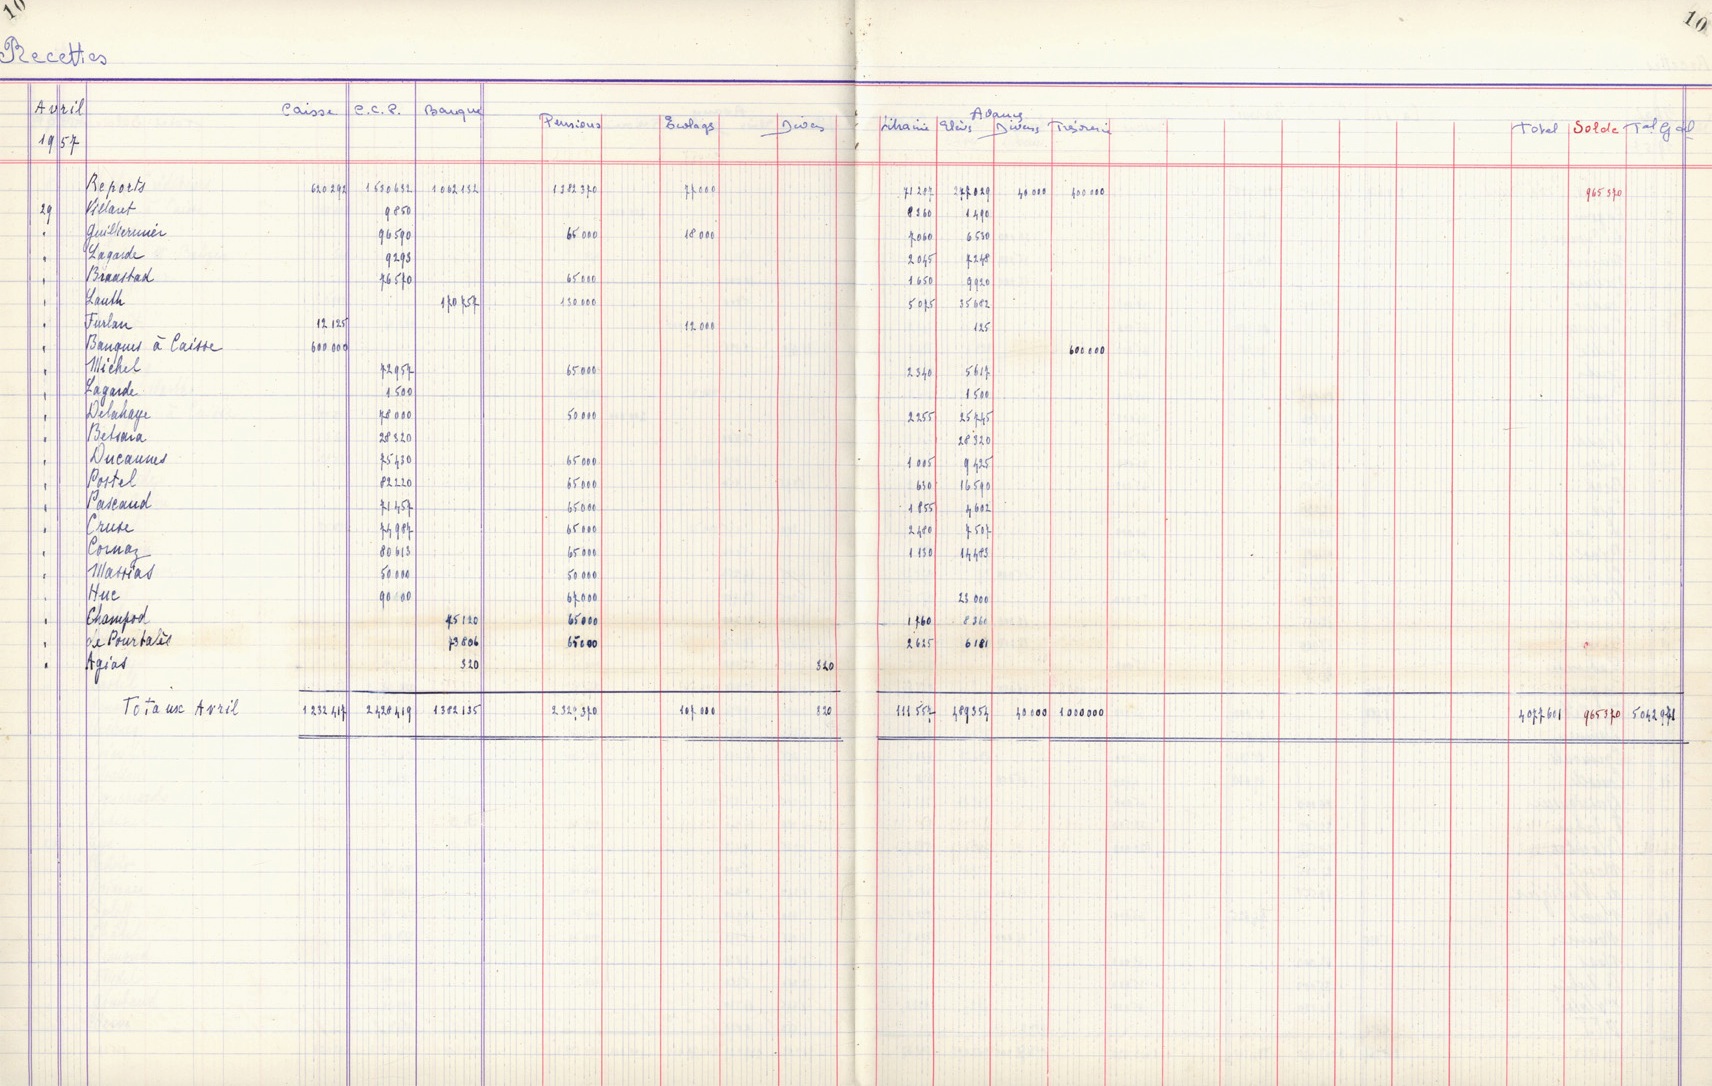 10
10
Recettes
Avril 1957 Caisse C.C.P. Banque Pensions Écolags Divers Librairie Elèves Avances Divers Trésorerie Total Solde Total Gal
Reports 620 292 1 530 632 1 062 132 1 382 370 77 000 71 287 277 029 40 000 400 000 965 370
29 Villaret 9 850 8 360 1 490
" Guillermier 96 590 65 000 18 000 7 060 6 530
" Lagarde 9 293 2 045 7 248
" Braastad 76 570 65 000 1 650 9 920
" Lauth 170 757 130 000 5 075 35 682
" Furlan 12 125 12 000 125
" Banques à Caisse 600 000 600 000
" Michel 72 957 65 000 2 340 5 617
" Lagarde 1 500 1 500
" Delahaye 78 000 50 000 2 255 25 745
" Betsara 28 320 28 320
" Ducaunes 75 430 65 000 1 005 9 425
" Postel 82 220 65 000 630 16 590
" Pascaud 71 457 65 000 1 855 4 602
" Cruse 74 987 65 000 2 480 7 507
" Cornaz 80 613 65 000 1 130 14 483
" Massias 50 000 50 000
" Huc 90 000 67 000 23 000
" Champod 75 120 65 000 1 760 8 360
" de Pourtalès 73 806 65 000 2 625 6 181
" Agias 320 320
Totaux Avril 1 232 417 2 428 419 1 382 135 2 329 370 107 000 320 111 557 489 354 40 000 1 000 000 4 077 601 965 370 5 042 971